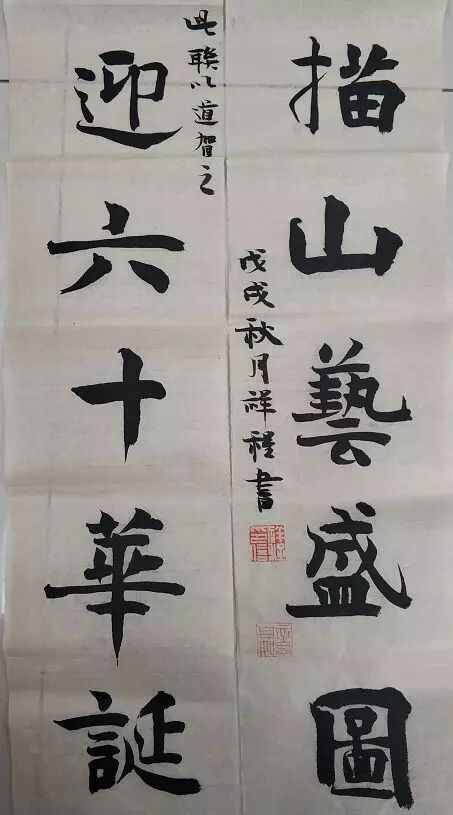 描山藝盛圖
戊戌秋月祥程書
此聯以道賀之
迎六十華誕